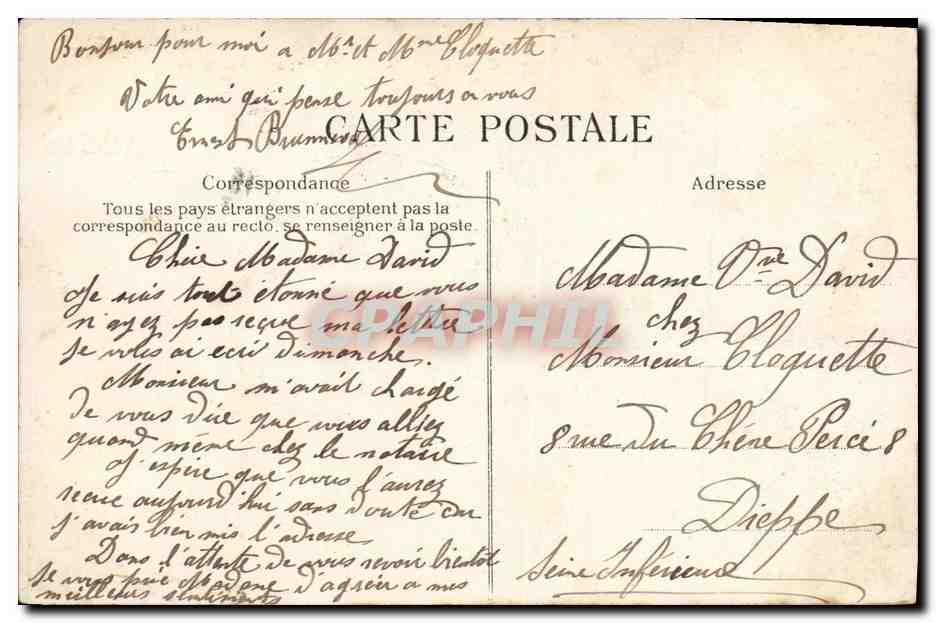 Bonjour pour moi a Mr et Mme Cloquette
Votre ami qui pense toujours a vous
Ernest
CARTE POSTALE
Correspondance
Tous les pays étrangers n'acceptent pas la
correspondance au recto. se renseigner à la poste.
Chére Madame David
Je suis tout étonné que vous
n'ayez pas reçue ma lettre
je vous ai ecri Dimanche.
Monsieur m'avait chargé
de vous dire que vous alliez
quand même chez le notaire
J'espere que vous l'aurez
recue aujourd'hui sans doute car
j'avais bien mis l'adresse
Dans l'attente de vous revoir bientot
je vous prie Madame d'agréer a mes
meilleurs sentiments
Adresse
Madame Vve David
chez
Monsieur Cloquette
8 rue du Chêne Percé 8
Dieppe
Seine Inférieure
CPAPHIL